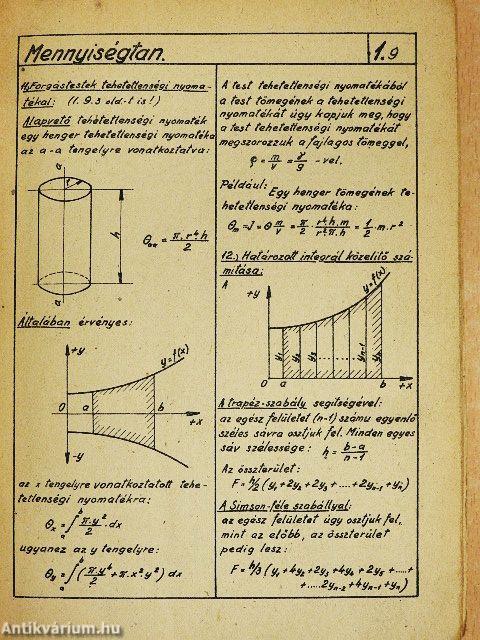 Mennyiségtan.
1.9
11.) Forgástestek tehetetlenségi nyoma-
tékai: (1.9.3 old.-t is!)
Alapvető tehetetlenségi nyomaték
egy henger tehetetlenségi nyomatéka
az a-a tengelyre vonatkoztatva:
a
r
h
a
Θaa = π.r⁴h/2
Általában érvényes:
+y
y=f(x)
0 a b +x
-y
az x tengelyre vonatkoztatott tehe-
tetlenségi nyomatékra:
Θx = ∫ₐᵇ π.y⁴/2 . dx
ugyanez az y tengelyre:
Θy = ∫ₐᵇ (π.y⁴/4 + π.x².y²) dx
A test tehetetlenségi nyomatékából
a test tömegének a tehetetlenségi
nyomatékát úgy kapjuk meg, hogy
a test tehetetlenségi nyomatékát
megszorozzuk a fajlagos tömeggel,
ρ = m/v = γ/g -vel.
Például:
Egy henger tömegének te-
hetetlenségi nyomatéka:
Θm = J = Θ m/v = π/2 . r⁴.h.m/r².π.h = 1/2 .m.r²
12.) Határozott integrál közelítő szá-
mítása:
A
+y
y=f(x)
y₁ y₂ y₃ yn-1 yn
0 a b +x
A trapéz-szabály segítségével:
az egész felületet (n-1) számu egyenlő
széles sávra osztjuk fel. Minden egyes
sáv szélessége: h = b-a/n-1
Az összterület:
F = h/2 (y₁+2y₂+2y₃+....+2yn-1+yn)
A Simson-féle szabállyal:
az egész felületet úgy osztjuk fel,
mint az előbb, az összterület
pedig lesz:
F = h/3 (y₁+4y₂+2y₃+4y₄+2y₅+.....+
+.....2yn-2+4yn-1+yn)
Antikvárium.hu